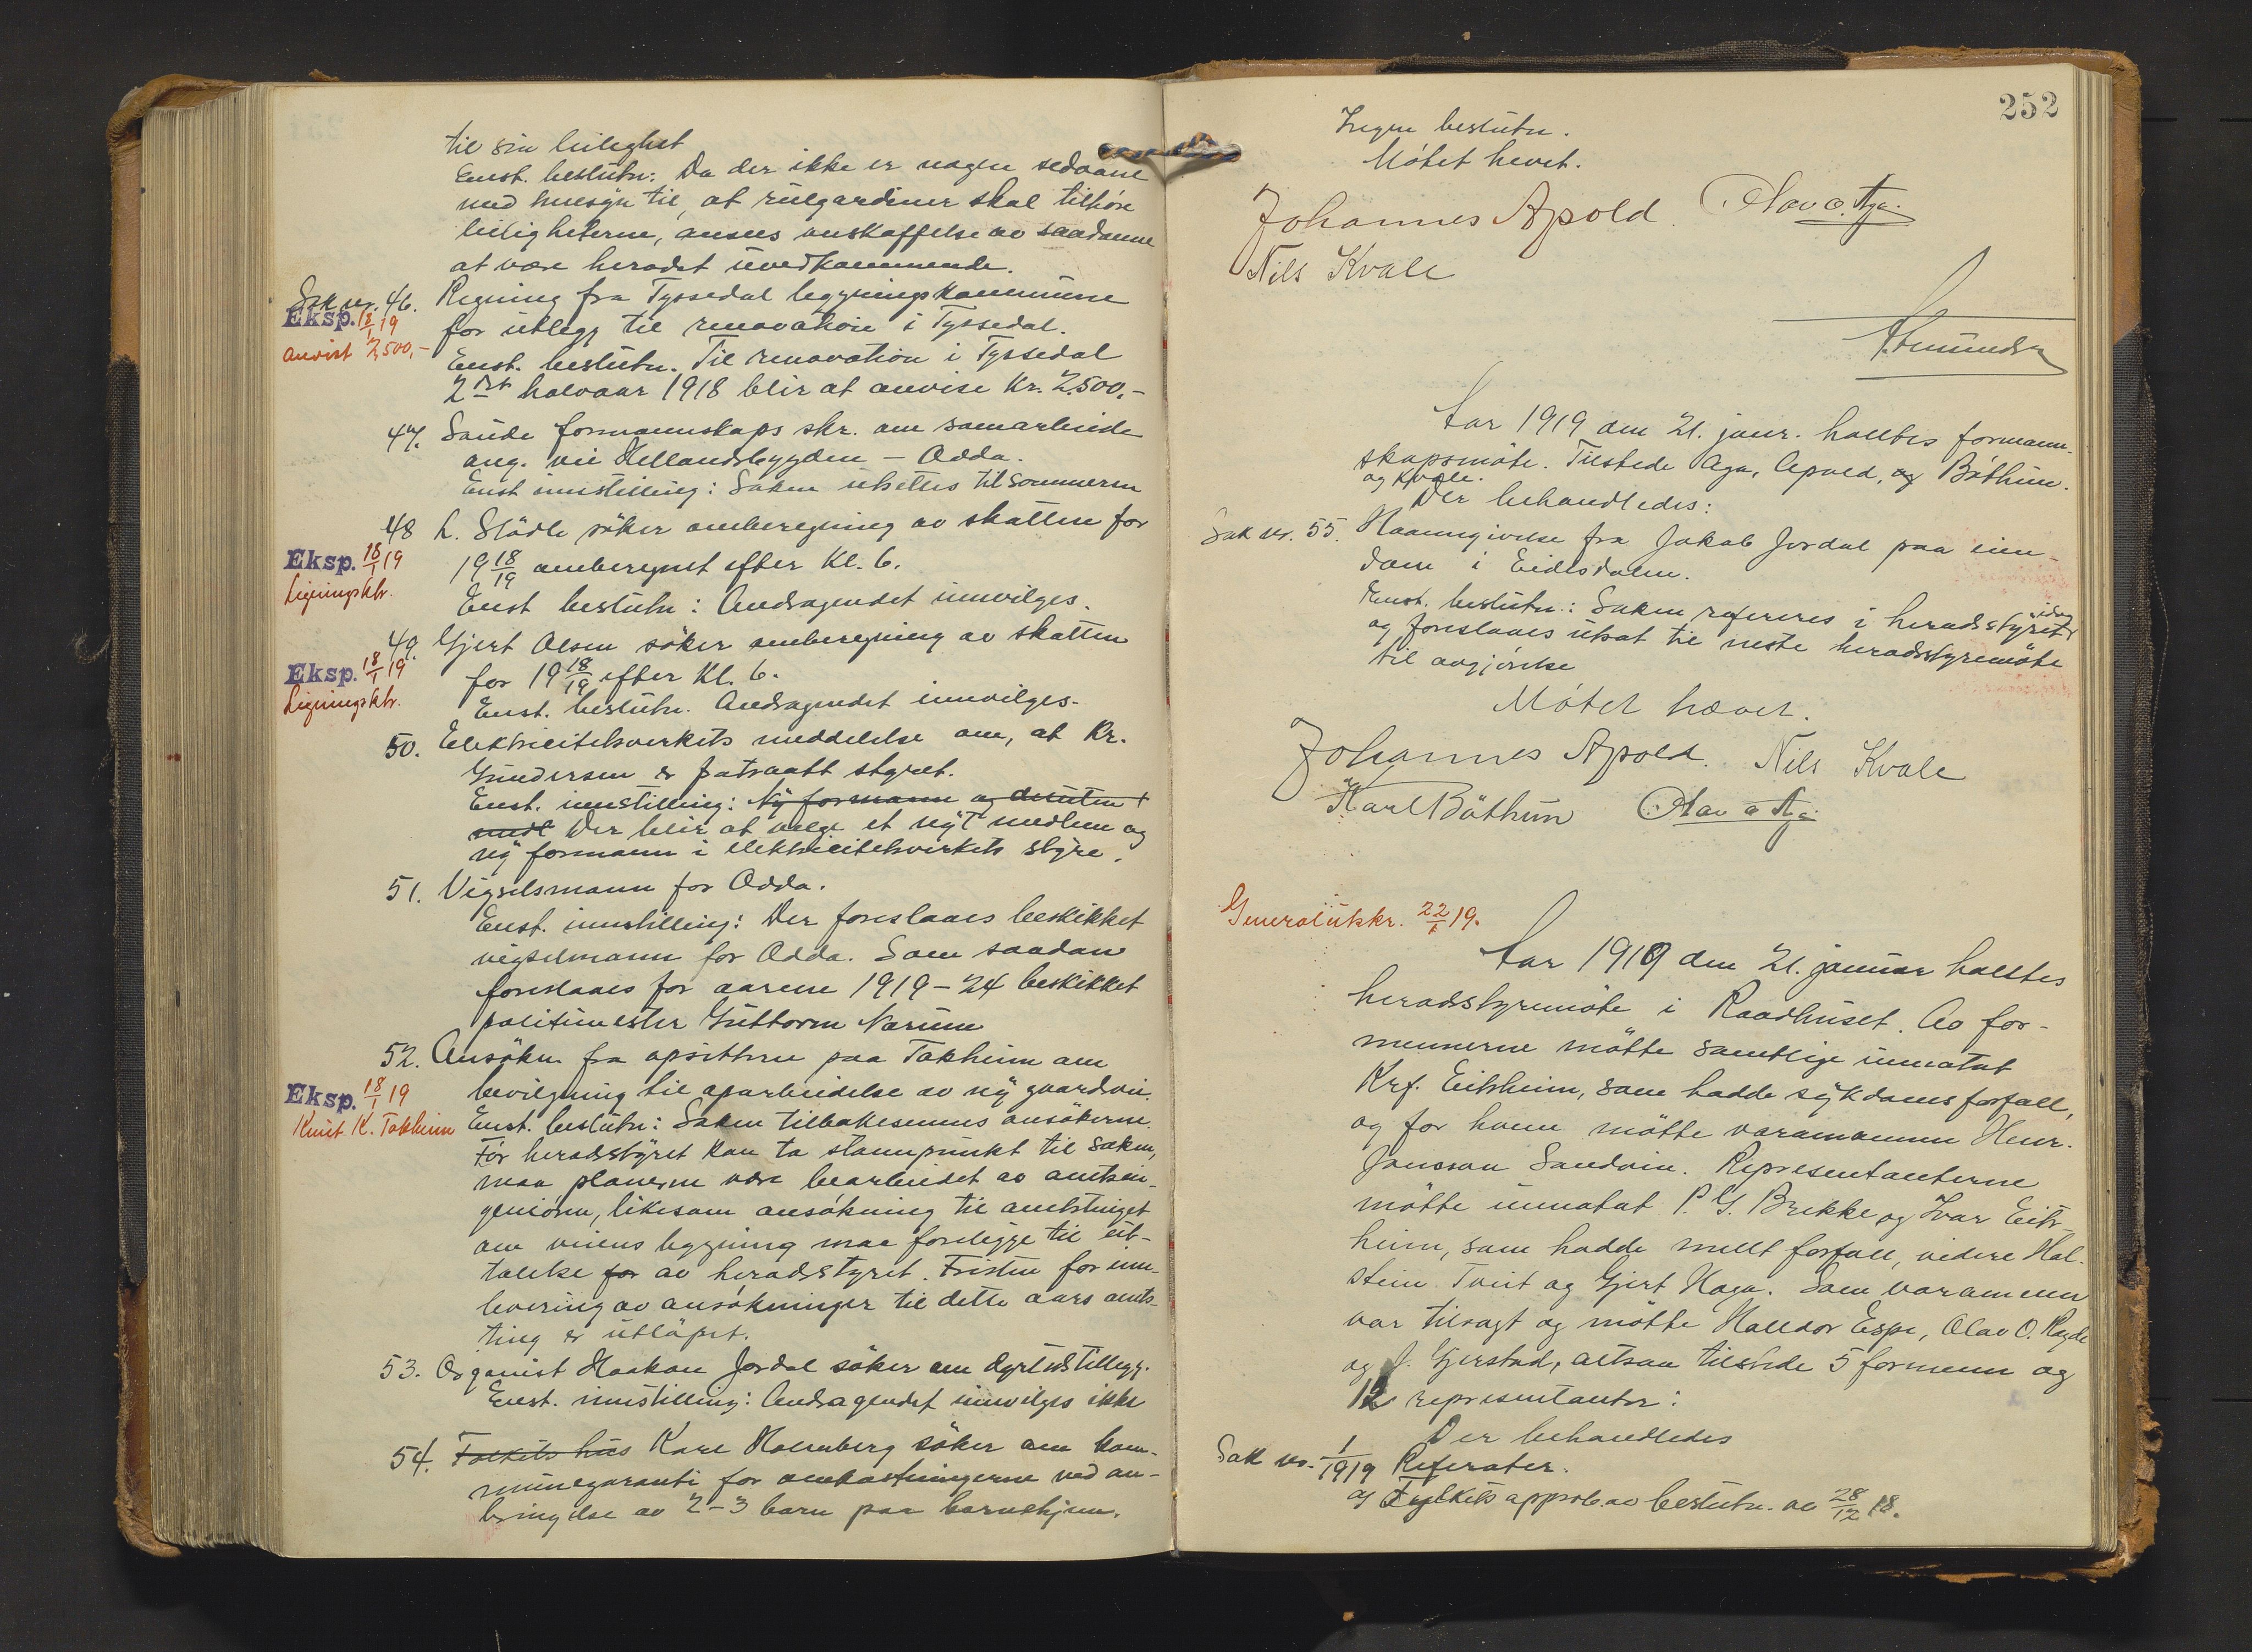 til sin leilighet
Enst. beslutn: Da der ikke er nogen sedvane
med hensyn til, at rulgardiner skal tilhöre
leiligheterne, ansees anskaffelse av saadanne
at være heradet uvedkommende.
Sak nr. 46. Regning fra Tyssedal bygningskommune
Eksp. 18/1 19 for utlegg til renovation i Tyssedal.
anvist 2,500,- Enst. beslutn. Til renovation i Tyssedal
2det halvaar 1918 blir at anvise Kr. 2,500,-
47. Saude formannskaps skr. om samarbeide
ang. vei Hellandsbygden - Odda.
Enst innstilling: Saken utsettes til sommeren
48 L. Slödle söker omberegning av skatten for
Eksp. 18/1 19 1918/19 omberegnet efter Kl. 6.
Ligningsktr. Enst beslutn: Andragendet innvilges.
49. Gjert Olsen söker omberegning av skatten
Eksp. 18/1 19 for 1918/19 efter Kl. 6.
Ligningsktr. Enst. beslutn. Andragendet innvilges.
50. Elektricitetsverkets meddelelse om, at Kr.
Gundersen er fratraatt styret.
Enst. innstilling: Ny formann og desuten 1
medl Der blir at velge et nyt medlem og
ny formann i elektricitetsverkets styre.
51. Vigselsmann for Odda.
Enst. innstilling: Der foreslaaes beskikket
vigselmann for Odda. Som saadan
foreslaaes for aarene 1919-24 beskikket
politimester Guttorm Narum
52. Ansökn fra opsitterne paa Tokheim om
Eksp. 18/1 19 bevilgning til oparbeidelse av ny gaardsvei.
Knut K. Tokheim Enst. beslutn: Saken tilbakesennes ansökerne.
Før heradsstyret kan ta stannpunkt til saken,
maa planerne være bearbeidet av amtsin-
geniören, likesom ansökning til amtstinget
om veiens bygning maa foreligge til ut-
talelse for av heradsstyret. Fristen for inn-
levering av ansökninger til dette aars amts-
ting er utlöpet.
53. Organist Haakon Jordal söker om dyrtidstillegg.
Enst. innstilling: Andragendet innvilges ikke
54. Folkets hus Karl Holmberg söker om kom-
munegaranti for omkostningerne ved an-
bringelse av 2-3 barn paa barnehjem.
252
Ingen beslutn.
Mötet hevet.
Johannes Apold. Olav O. Aga.
Nils Kvale
Aar 1919 den 21. janr. holltes formann-
skapsmöte. Tilstede Aga, Apold, og Böthun.
og Kvale.
Der behandledes:
Sak nr. 55. Haanngivelse fra Jakob Jordal paa eien-
dom i Eidesdalen.
Enst. beslutn.: Saken refereres i heradsstyret idag
og foreslaaes utsat til neste heradsstyremöte
til avgjörelse
Mötet hævet.
Johannes Apold. Nils Kvale
Karl Böthun Olav O Aga.
Generalutskr. 22/1 19.
Aar 1919 den 21. januar holltes
heradsstyremöte i Raadhuset. Av for-
mennerne mötte samtlige unnatat
Krf. Eitrheim, som hadde sykdomsforfall,
og for hvem mötte varamannen Henr.
Jansson Sandvin. Representanterne
mötte unnatat P. G. Brekke og Ivar Eitr-
heim, som hadde mellt forfall, videre Hal-
stein Tveit og Gjert Haga. Som varamenn
var tilsagt og mötte Halldor Espe, Olav O. Ragde
og J. Gjerstad, altsaa tilstede 5 formenn og
12 representanter:
Der behandledes
Sak nr. 1/1919 Referater.
a) Fylkets approb av beslutn. av 28/12 18.